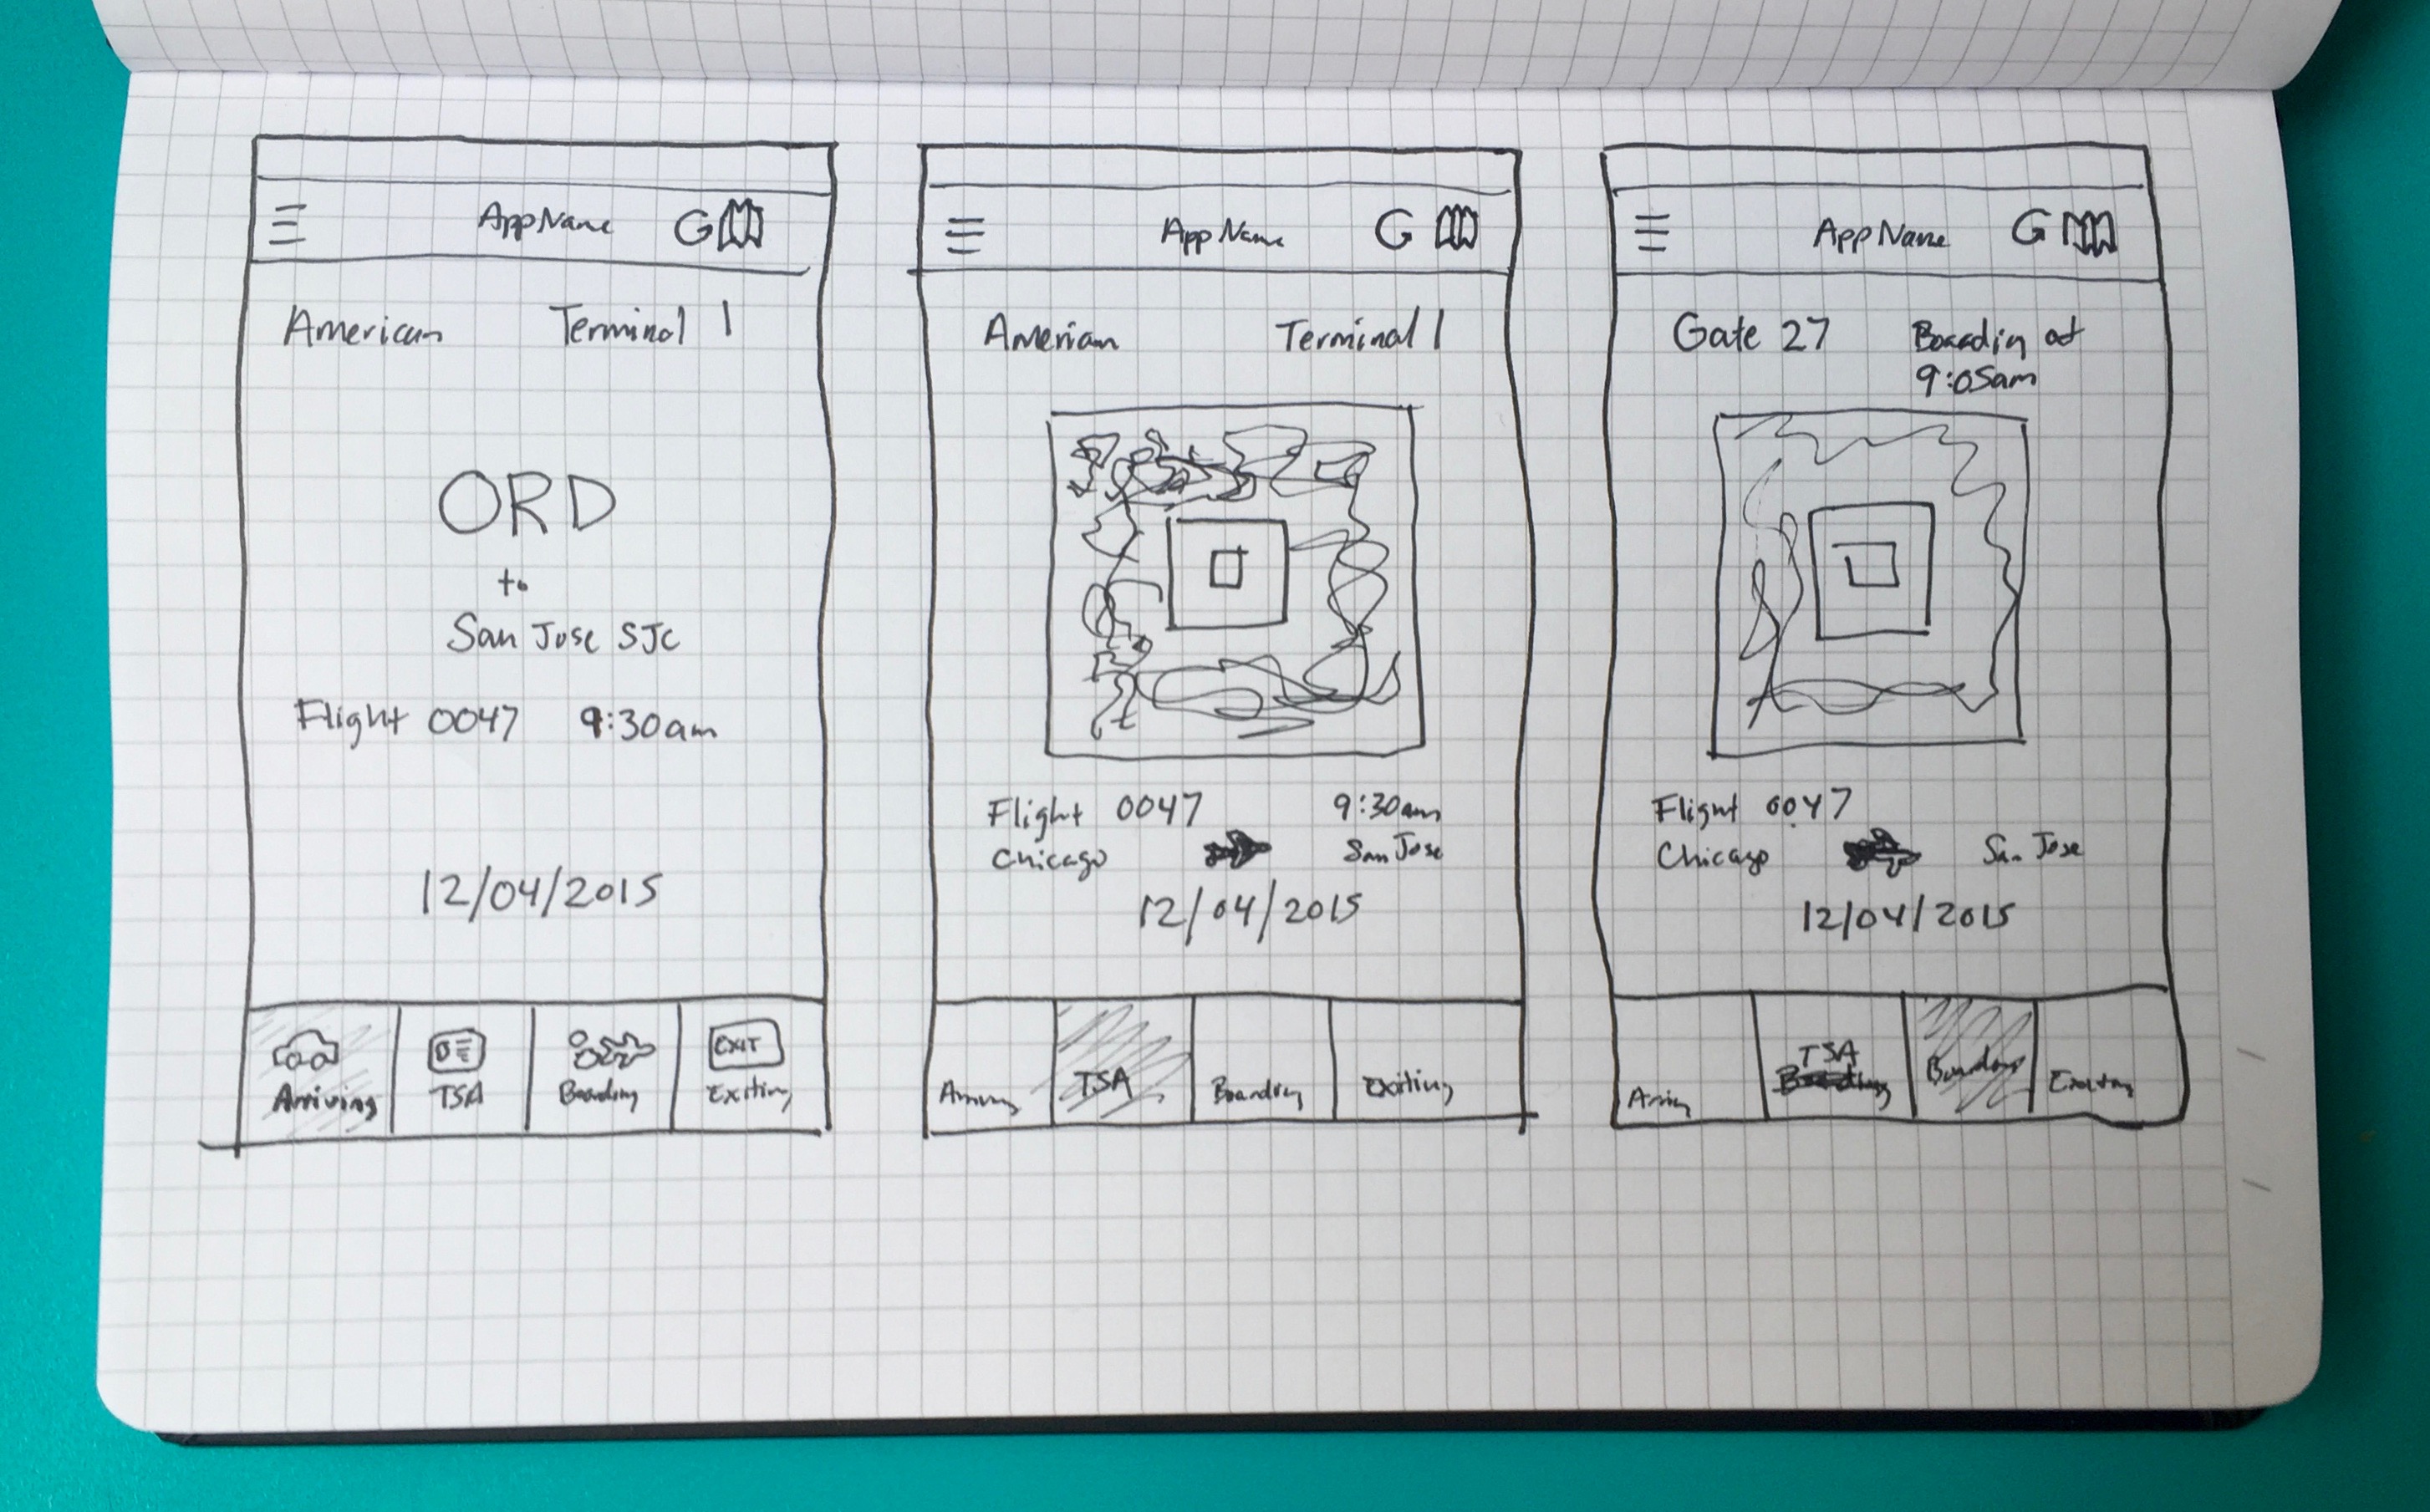 AppName G
American Terminal 1
ORD
to
San Jose SJC
Flight 0047 9:30am
12/04/2015
Arriving TSA Boarding EXIT Exiting
App Name G
Amerian Terminal 1
Flight 0047 9:30am
Chicago San Jose
12/04/2015
Arriving TSA Boarding Exiting
App Name G
Gate 27 Boarding at
9:05am
Flight 0047
Chicago San Jose
12/04/2015
TSA
Boarding